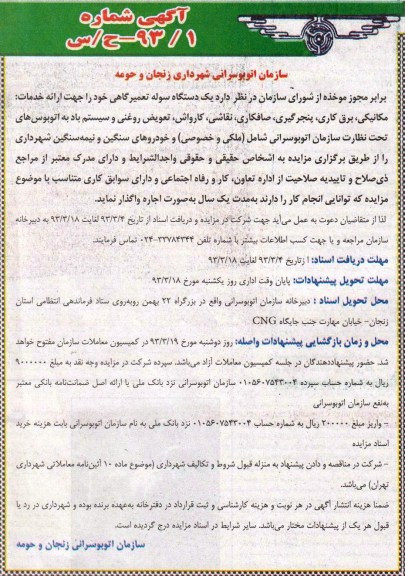 آگهی شماره
۹۳/۱-ح/س
سازمان اتوبوسرانی شهرداری زنجان و حومه
برابر مجوز موخذه از شورای سازمان در نظر دارد یک دستگاه سوله تعمیرگاهی خود را جهت ارائه خدمات:
مکانیکی، برق کاری، پنجرگیری، صافکاری، نقاشی، کارواش، تعویض روغنی و سیستم باد به اتوبوس‌های
تحت نظارت سازمان اتوبوسرانی شامل (ملکی و خصوصی) و خودروهای سنگین و نیمه‌سنگین شهرداری
را از طریق برگزاری مزایده به اشخاص حقیقی و حقوقی واجدالشرایط و دارای مدرک معتبر از مراجع
ذی‌صلاح و تاییدیه صلاحیت از اداره تعاون، کار و رفاه اجتماعی و دارای سوابق کاری متناسب با موضوع
مزایده که توانایی انجام کار را دارند به‌مدت یک سال به‌صورت اجاره واگذار نماید.
لذا از متقاضیان دعوت به عمل می‌آید جهت شرکت در مزایده و دریافت اسناد از تاریخ ۹۳/۳/۴ لغایت ۹۳/۳/۱۸ به دبیرخانه
سازمان مراجعه و یا جهت کسب اطلاعات بیشتر با شماره تلفن ۳۳۷۸۴۳۴۴-۰۲۴ تماس فرمایند.
مهلت دریافت اسناد: از تاریخ ۹۳/۳/۴ لغایت ۹۳/۳/۱۸
مهلت تحویل پیشنهادات: پایان وقت اداری روز یکشنبه مورخ ۹۳/۳/۱۸
محل تحویل اسناد : دبیرخانه سازمان اتوبوسرانی واقع در بزرگراه ۲۲ بهمن روبه‌روی ستاد فرماندهی انتظامی استان
زنجان- خیابان مهارت جنب جایگاه CNG
محل و زمان بازگشایی پیشنهادات واصله: روز دوشنبه مورخ ۹۳/۳/۱۹ در کمیسیون معاملات سازمان مفتوح خواهد
شد. حضور پیشنهاددهندگان در جلسه کمیسیون معاملات آزاد می‌باشد. سپرده شرکت در مزایده وجه نقد به مبلغ ۹۰۰۰۰۰۰
ریال به شماره حساب سپرده ۰۱۰۵۶۰۷۵۴۳۰۰۴ سازمان اتوبوسرانی نزد بانک ملی یا ارائه اصل ضمانت‌نامه بانکی معتبر
به‌نفع سازمان اتوبوسرانی
- واریز مبلغ ۲۰۰۰۰۰ ریال به شماره حساب ۰۱۰۵۶۰۷۵۴۳۰۰۴ نزد بانک ملی به نام سازمان اتوبوسرانی بابت هزینه خرید
اسناد مزایده
- شرکت در مناقصه و دادن پیشنهاد به منزله قبول شروط و تکالیف شهرداری (موضوع ماده ۱۰ آئین‌نامه معاملاتی شهرداری
تهران) می‌باشد.
ضمنا هزینه انتشار آگهی در هر نوبت و هزینه کارشناسی و ثبت قرارداد در دفترخانه به‌عهده برنده بوده و شهرداری در رد یا
قبول هر یک از پیشنهادات مختار می‌باشد. سایر شرایط در اسناد مزایده درج گردیده است.
سازمان اتوبوسرانی زنجان و حومه